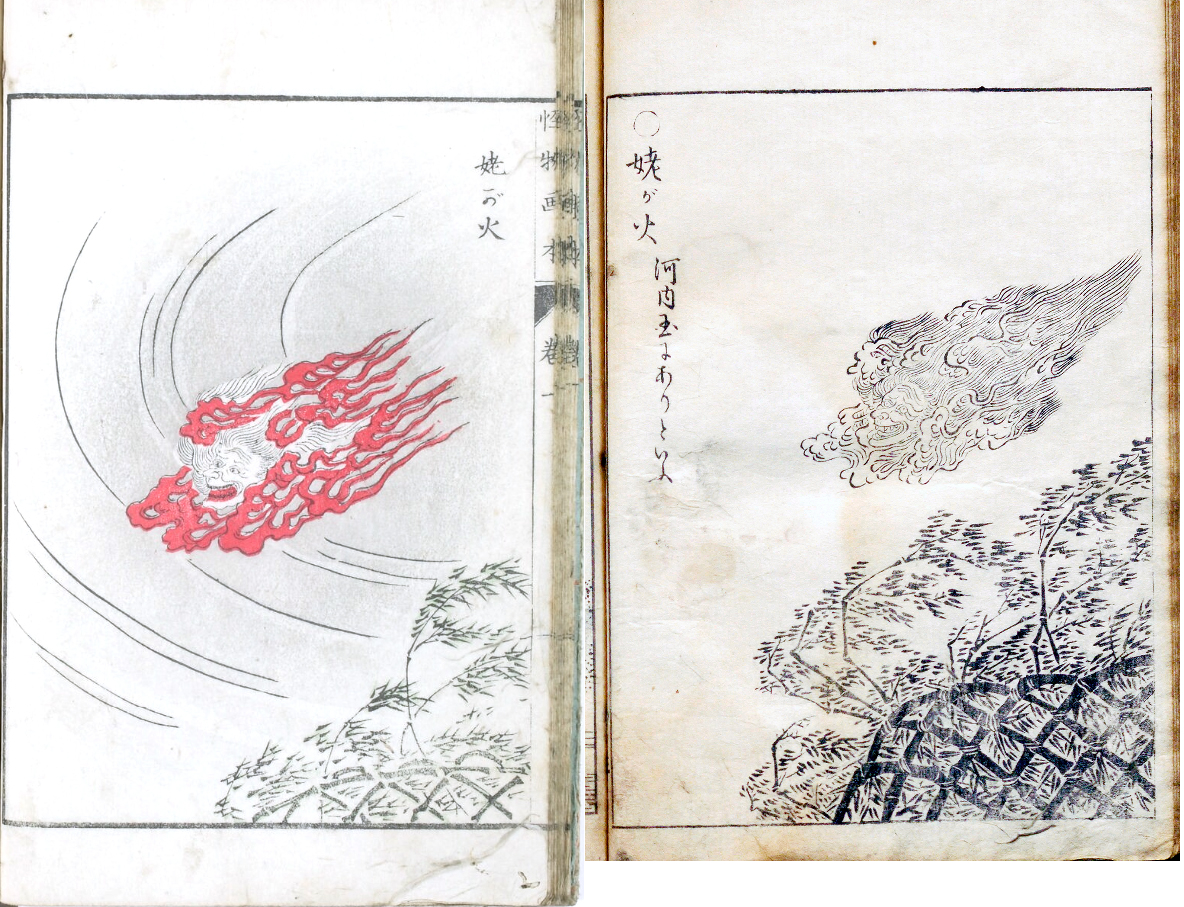 怪物画本
姥が火
○姥が火
河内国にありといふ